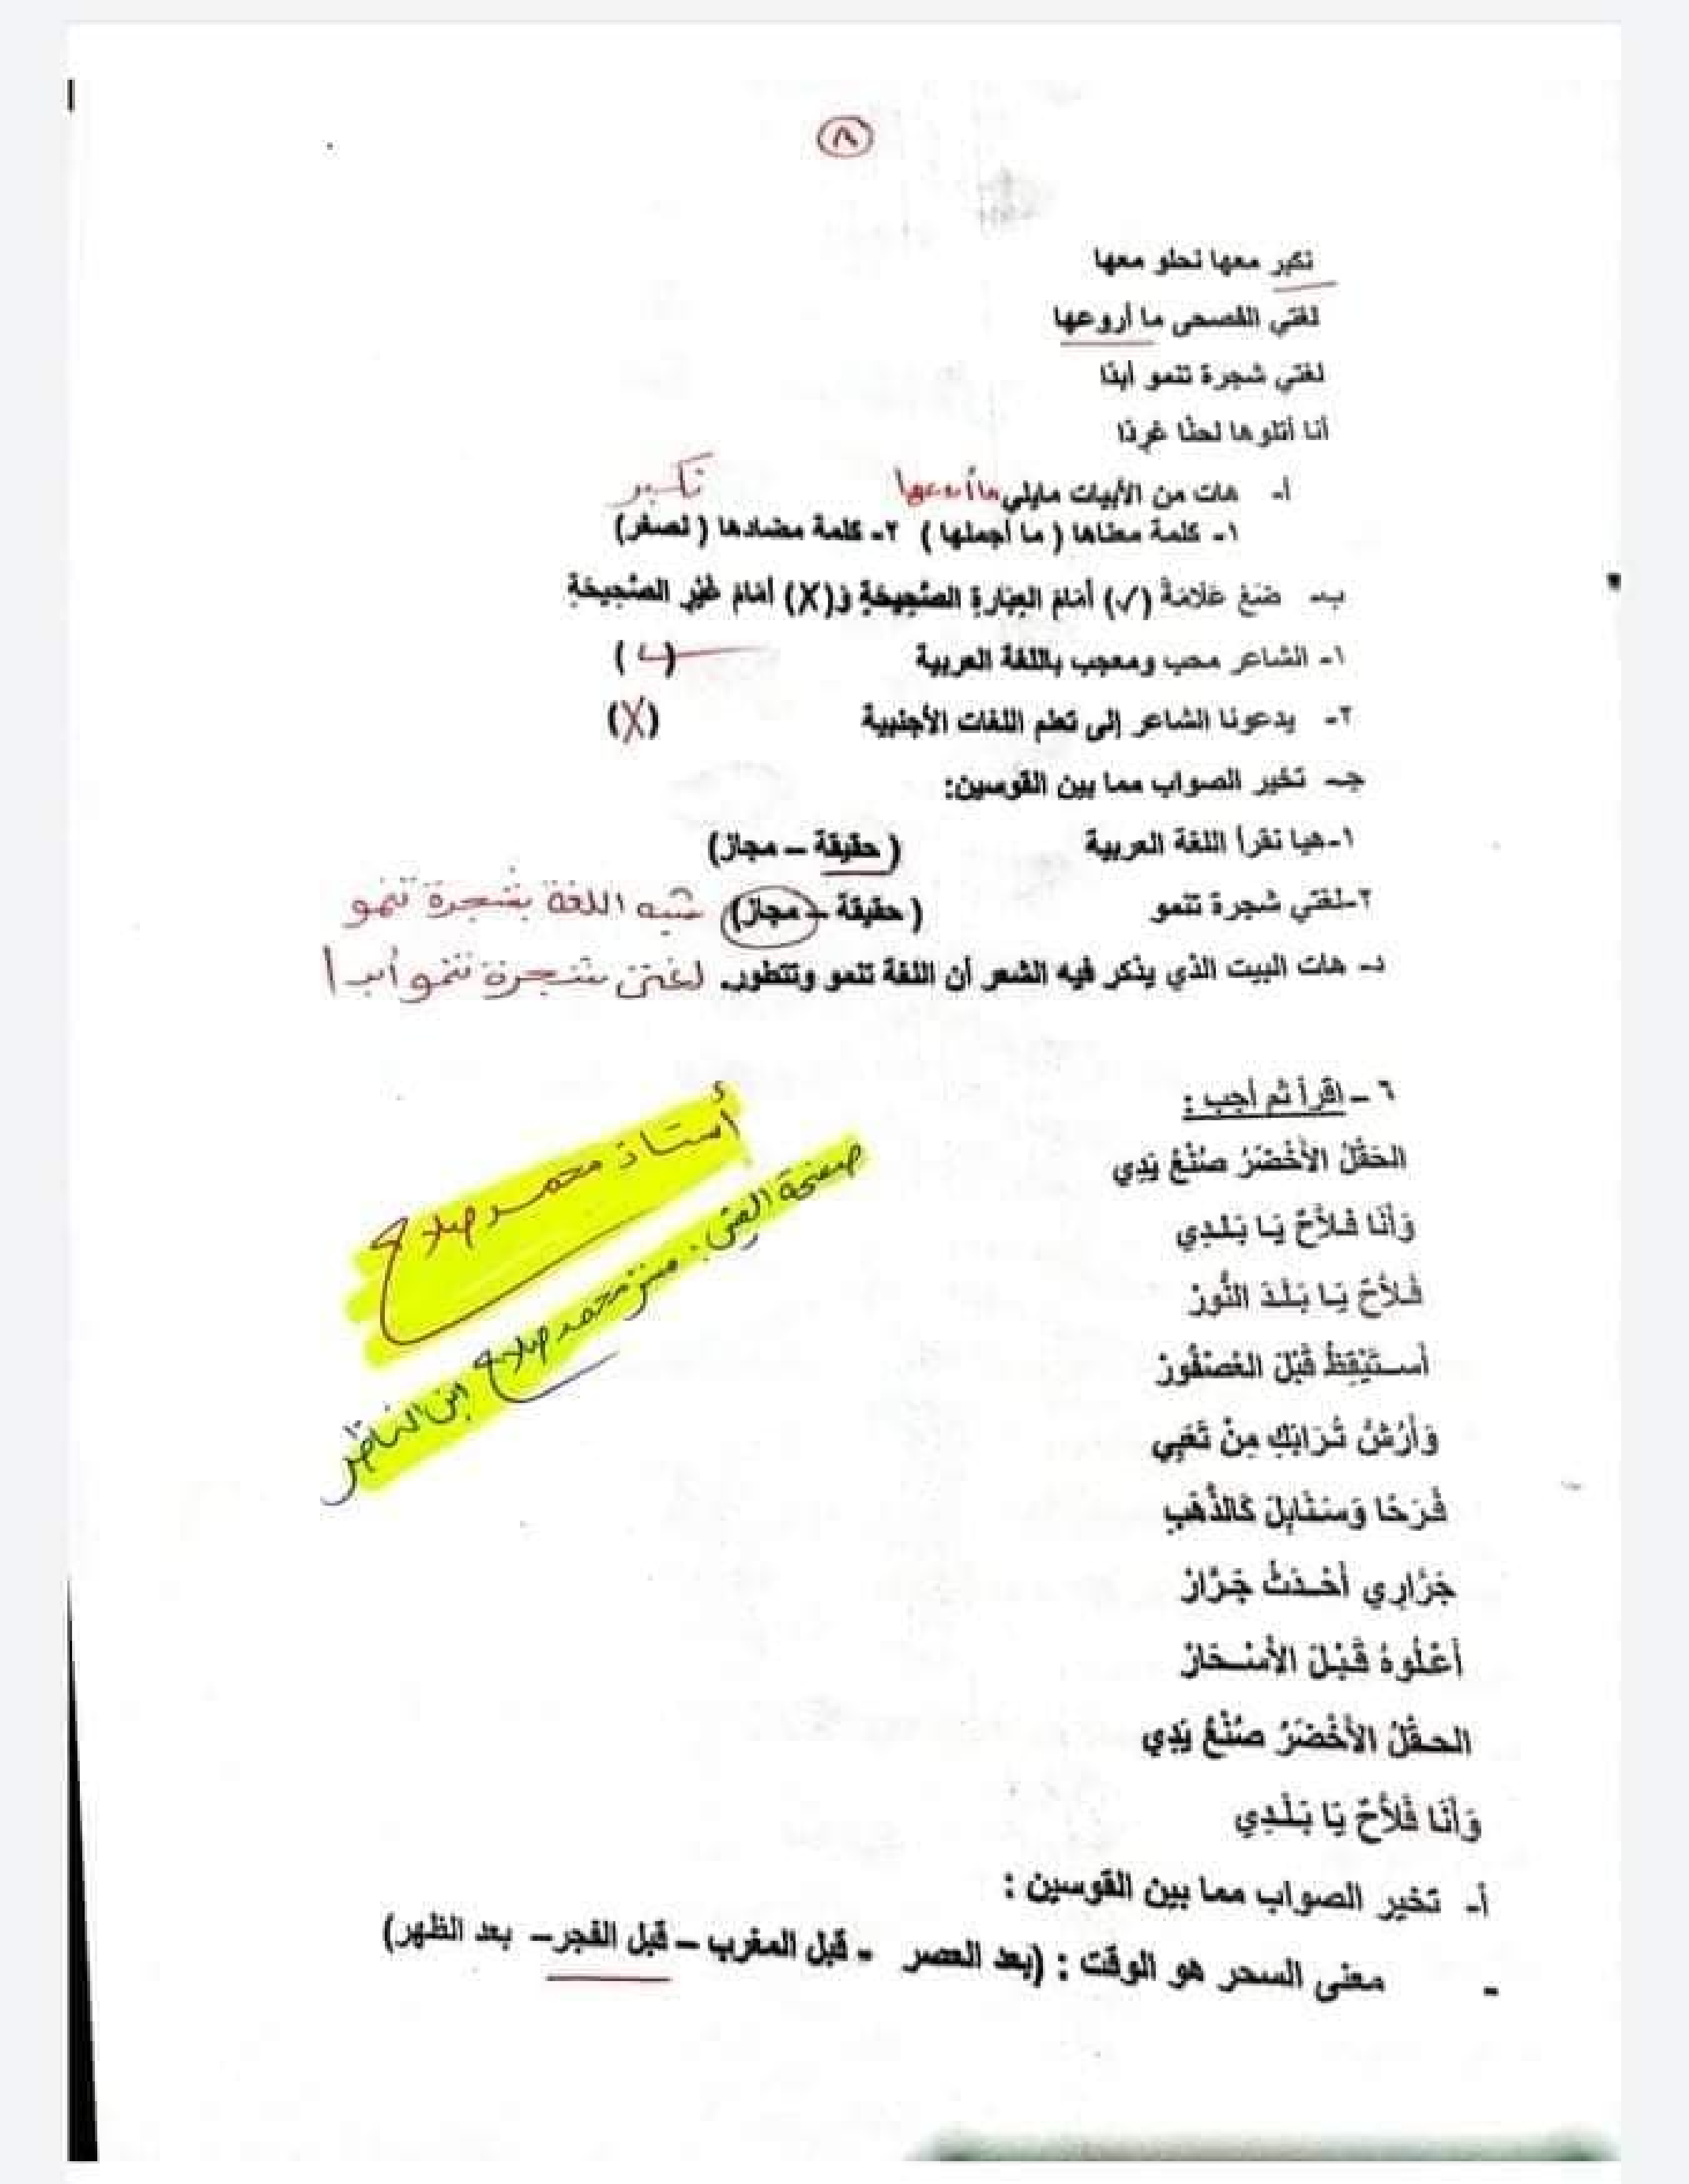 ٨
نكبر معها نحلو معها
لغتي الفصحى ما أروعها
لغتي شجرة تنمو أبدًا
أنا أتلوها لحنًا غردًا
أ- هات من الأبيات مايلي ما أروعها نكبر
١- كلمة معناها ( ما أجملها ) ٢- كلمة مضادها ( نصغر)
ب- ضَعْ عَلَامَةَ (✓) أَمَامَ العِبَارَةِ الصَّحِيحَةِ وَ(X) أَمَامَ غَيْرِ الصَّحِيحَةِ
١- الشاعر محب ومعجب باللغة العربية (✓)
٢- يدعونا الشاعر إلى تعلم اللغات الأجنبية (X)
جـ- تخير الصواب مما بين القوسين:
١-هيا نقرأ اللغة العربية ( حقيقة – مجاز)
٢-لغتي شجرة تنمو ( حقيقة – مجاز) شبه اللغة بشجرة تنمو
د- هات البيت الذي يذكر فيه الشعر أن اللغة تنمو وتتطور. لغتى شجرة تنمو أبدا
٦ – اقرأ ثم أجب :
الحَقْلُ الأَخْضَرُ صُنْعُ يَدِي
وَأَنَا فَلاَّحٌ يَا بَلَدِي
فَلاَّحٌ يَا بَلَدَ النُّورْ
أستَيْقِظُ قَبْلَ العُصْفُورْ
وَأَرُشُّ تُرَابَكِ مِنْ تَعَبِي
فَرَحًا وَسَنَابِلَ كَالذَّهَبِ
جَرَّارِي أَحْدَثُ جَرَّارْ
أَعْلُوهُ قَبْلَ الأَسْحَارْ
الحقْلُ الأَخْضَرُ صُنْعُ يَدِي
وَأَنَا فَلاَّحٌ يَا بَلَدِي
أستاذ محمد صلاح
صفحة الفيس: مستر محمد صلاح ابن الناصر
أ- تخير الصواب مما بين القوسين :
- معنى السحر هو الوقت : (بعد العصر - قبل المغرب – قبل الفجر– بعد الظهر)